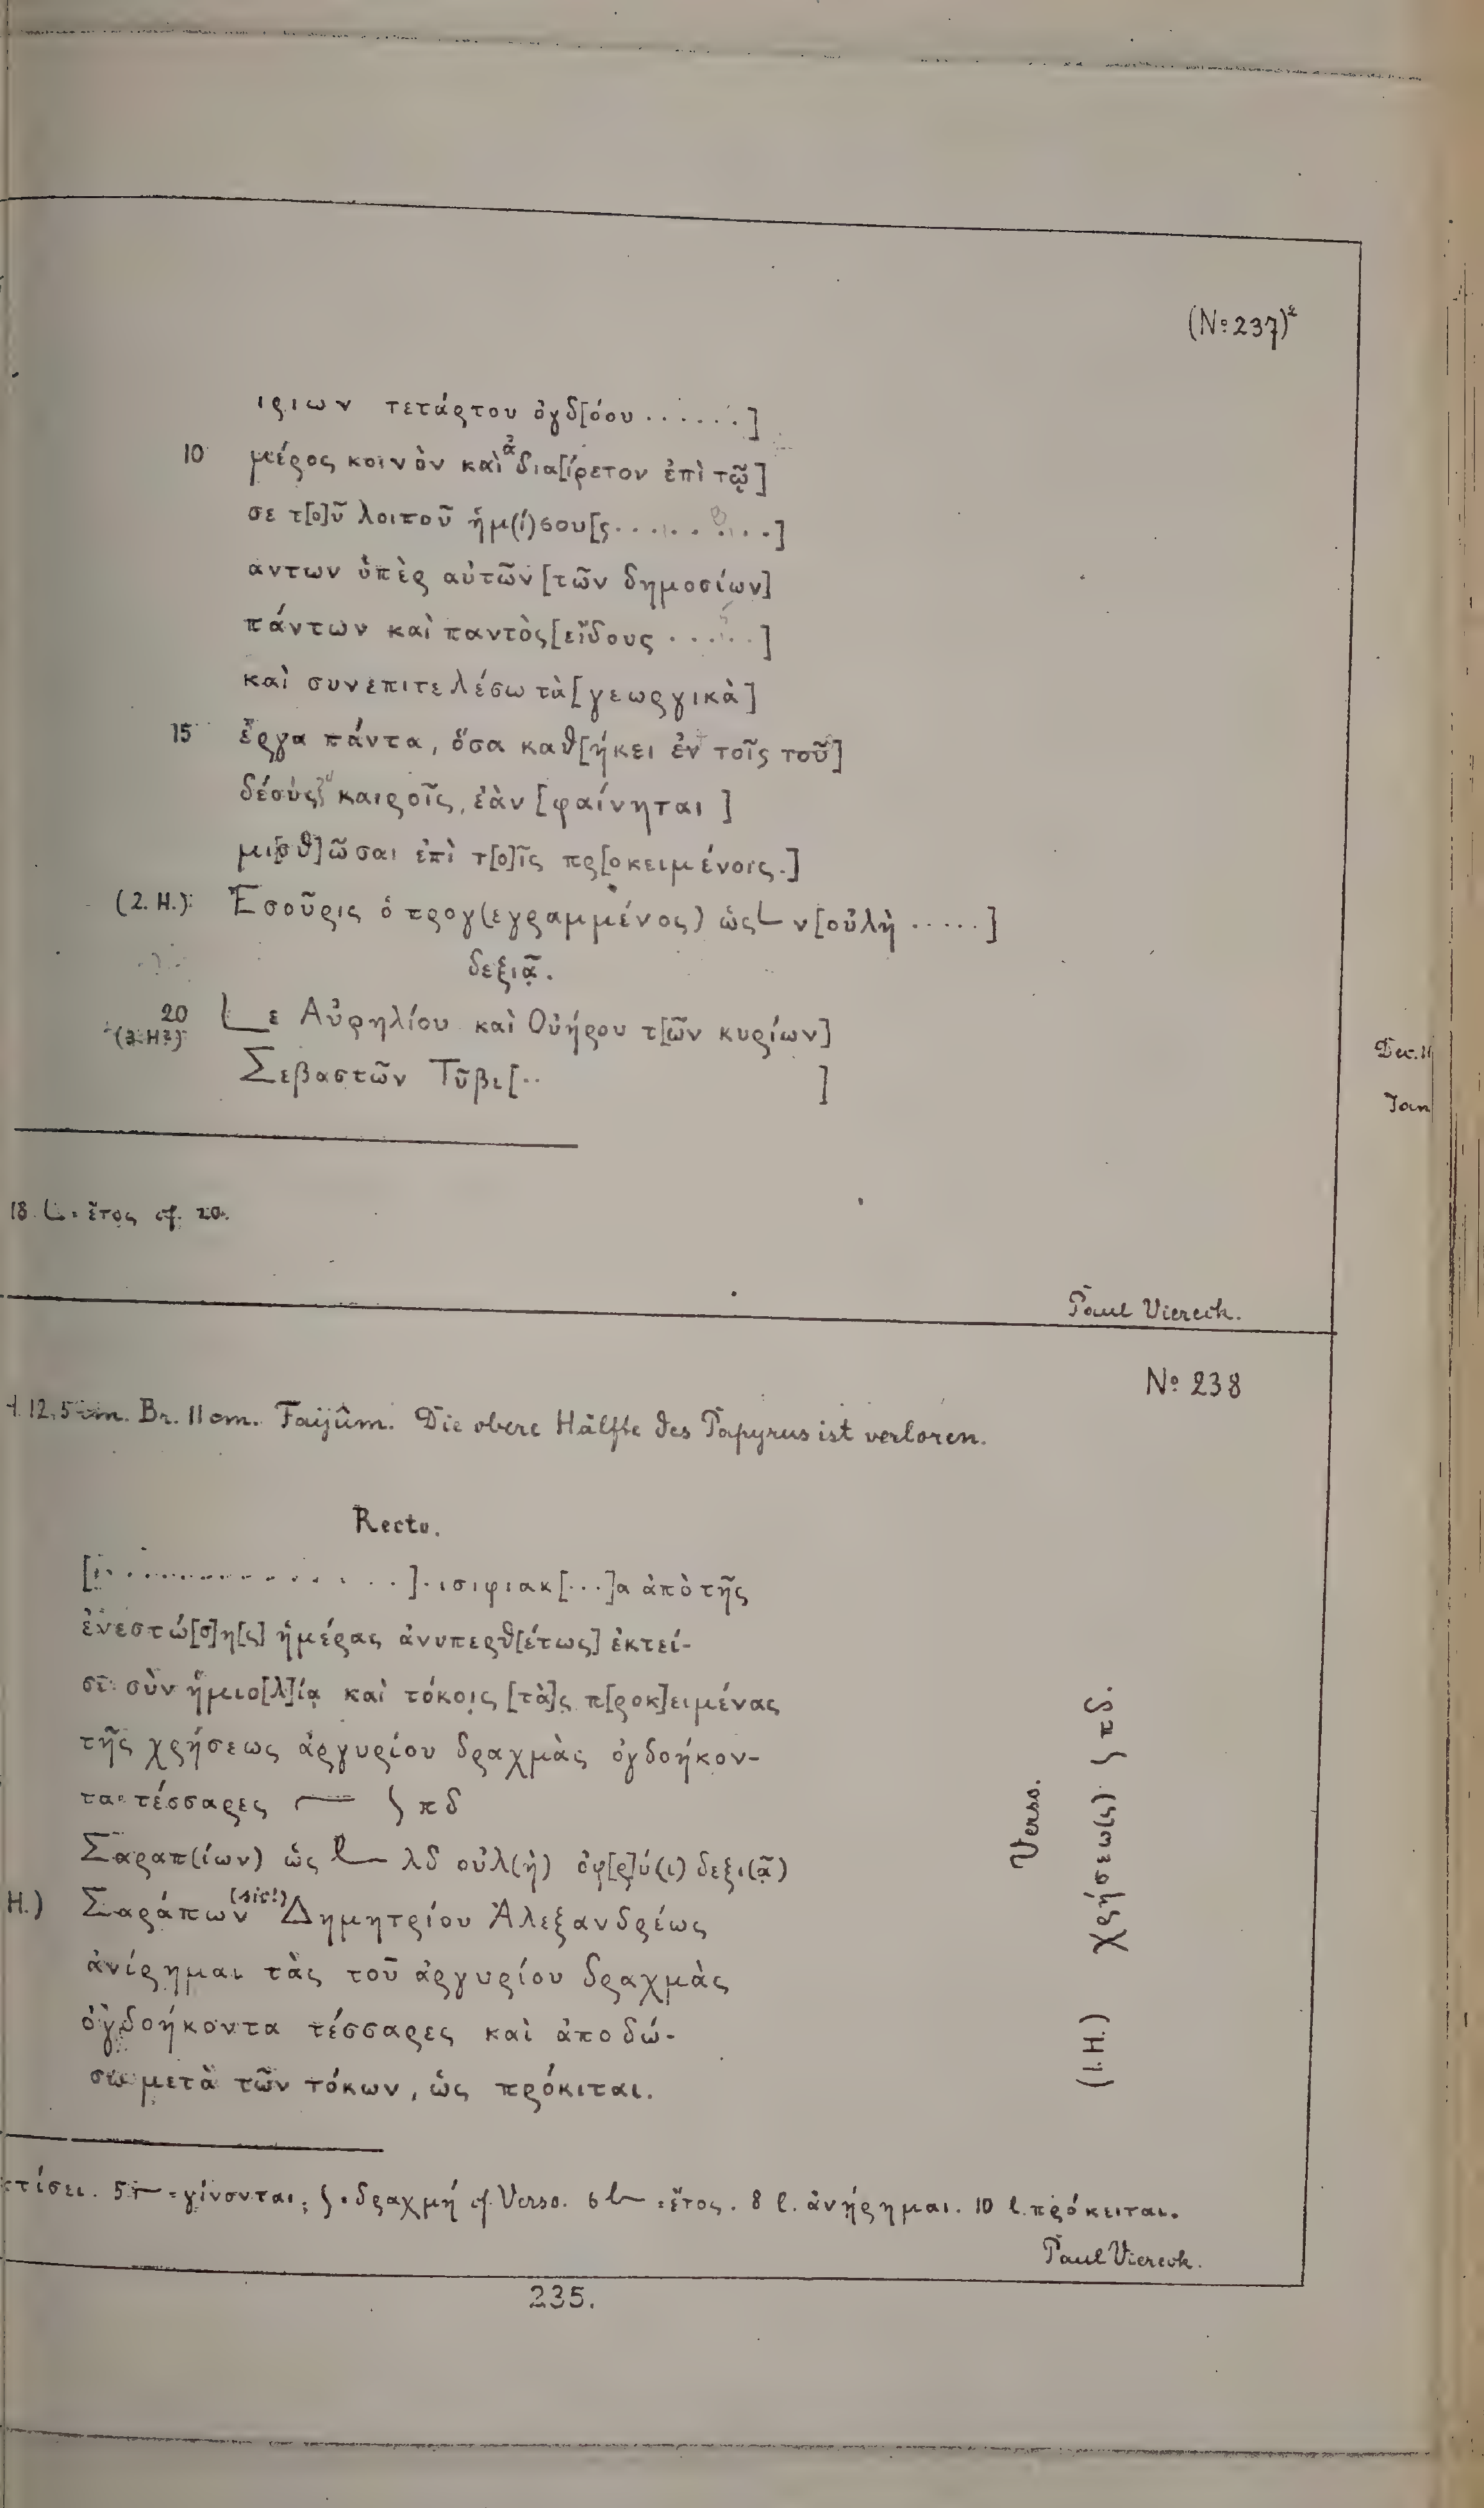 (No 237)²
ιριων τετάρτου ὀγδ[όου ......]
10 μέρος κοινὸν καὶ ἀδια[ίρετον ἐπὶ τῷ]
σε τ[ο]ῦ λοιποῦ ἡμ(ί)σου[ς.........]
αντων ὑπὲρ αὐτῶν [τῶν δημοσίων]
πάντων καὶ παντὸς [εἴδους ......]
καὶ συνεπιτελέσω τὰ [γεωργικὰ]
15 ἔργα πάντα, ὅσα καθ[ήκει ἐν τοῖς τοῦ]
δέους καιροῖς, ἐὰν [φαίνηται ]
μι[σθ]ῶσαι ἐπὶ τ[ο]ῖς πρ[οκειμένοις.]
(2. H.) Ἐσοῦρις ὁ προγ(εγραμμένος) ὡς L ν [οὐλὴ .....]
δεξιᾷ.
20 L ε Αὐρηλίου καὶ Οὐήρου τ[ῶν κυρίων]
(3. H?)
Σεβαστῶν Τῦβι [.. ]
Dec.
Jan
18 L = ἔτος cf. 20.
Paul Viereck.
No 238
12,5 cm. Br. 11 cm. Faijûm. Die obere Hälfte des Papyrus ist verloren.
Recto.
[..................].ισιφιακ[...]α ἀπὸ τῆς
ἐνεστώ[σ]η[ς] ἡμέρας ἀνυπερθ[έτως] ἐκτεί-
σι σὺν ἡμιο[λ]ίᾳ καὶ τόκοις [τὰ]ς π[ροκ]ειμένας
τῆς χρήσεως ἀργυρίου δραχμὰς ὀγδοήκον-
τα τέσσαρες ⌐ ʃ πδ
Σαραπ(ίων) ὡς L λδ οὐλ(ὴ) ὀφ[ρ]ύ(ι) δεξι(ᾷ)
H.) Σαράπων (sic!) Δημητρίου Ἀλεξανδρέως
ἀνίρημαι τὰς τοῦ ἀργυρίου δραχμὰς
ὀγδοήκοντα τέσσαρες καὶ ἀποδώ-
σω μετὰ τῶν τόκων, ὡς πρόκιται.
Verso.
(1. H.) χρήσεω(ς) ʃ πδ.
κτίσει. 5 ⌐ = γίνονται, ʃ = δραχμή cf. Verso. 6 L = ἔτος. 8 l. ἀνῄρημαι. 10 l. πρόκειται.
Paul Viereck.
235.